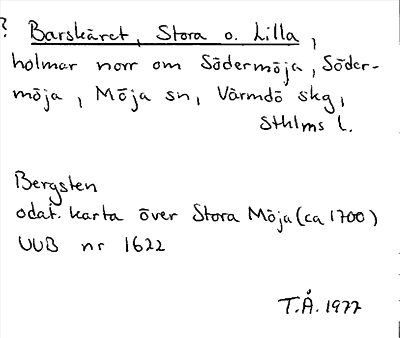 ? Barskäret, Stora o. Lilla,
holmar norr om Södermöja, Söder-
möja, Möja sn, Värmdö skg,
Sthlms l.
Bergsten
odat. karta över Stora Möja (ca 1700)
UUB nr 1622
T.Å. 1977